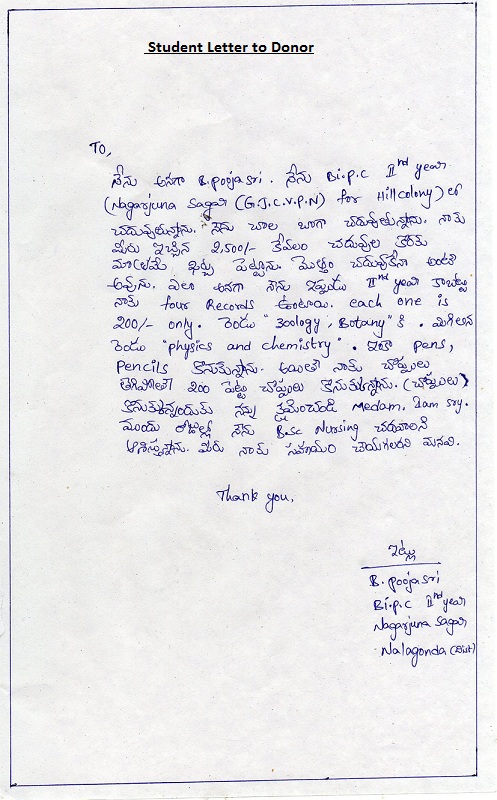 Student Letter to Donor
To,
నేను అనగా B.poojasri. నేను Bi.p.c IInd year
(Nagarjuna Sagar (G.J.C.V.P.N) for Hillcolony) లో
చదువుతున్నాను. నేను చాల బాగా చదువుతున్నాను. నాకు
మీరు ఇచ్చిన 2,500/- కేవలం చదువుల కొరకు
మాత్రమే ఖర్చు పెట్టాను. మొత్తం చదువుకేనా అంటే
అవును. ఏలా అనగా నేను ఇప్పుడు IInd year కాబట్టి
నాకు four Records ఉంటాయి. each one is
200/- only. రెండు "Zoology, Botany" కి. మిగిలిన
రెండు "physics and chemistry". ఇంకా pens,
pencils కొనుకున్నాను. అయితే నాకు చెప్పులు
తెగిపోతే 200 పెట్టి చెప్పులు కొనుకున్నాను. (చెప్పులు)
కొనుకున్నందుకు నన్ను క్షమించండి medam. I am sry.
ముందు రోజుల్లో నేను B.sc Nursing చదవాలని
ఆశిస్తున్నాను. మీరు నాకు సహాయం చేయగలరని మనవి.
Thank you,
ఇట్లు
B. poojasri
Bi.p.c IInd year
Nagarjuna sagar
Nalagonda (Dist)